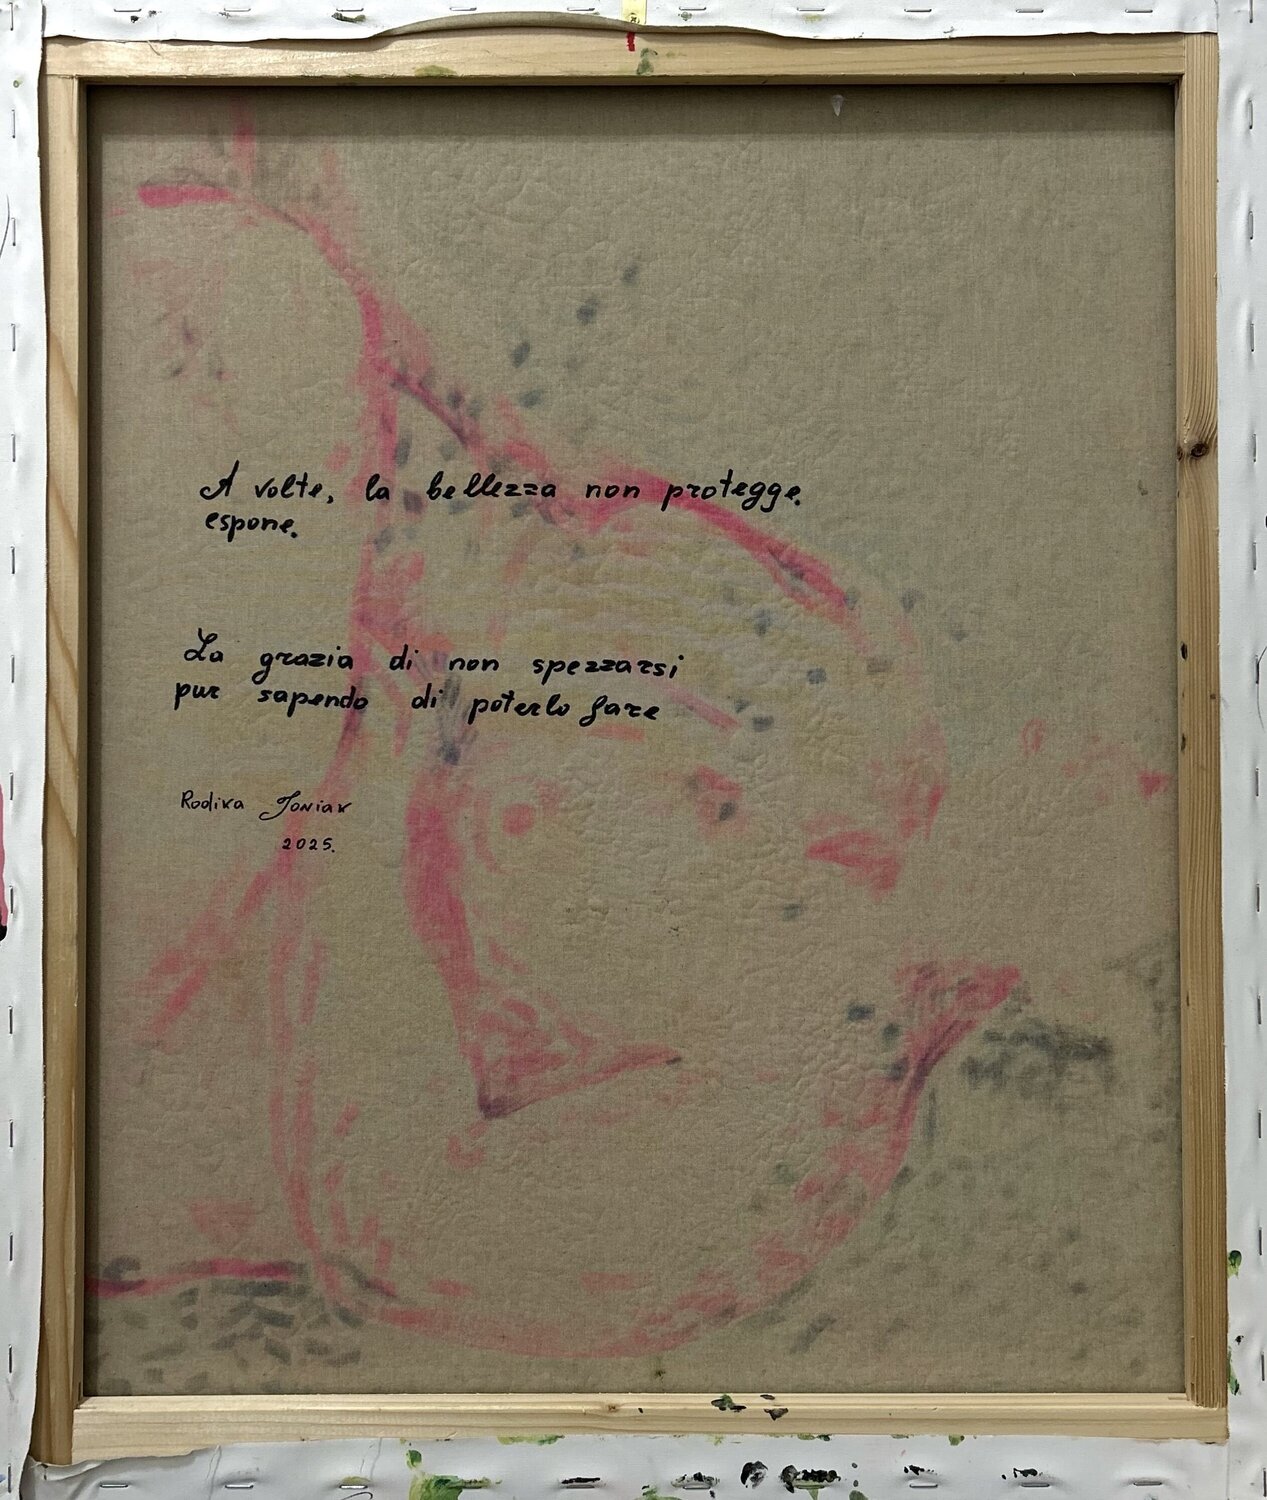 A volte, la bellezza non protegge.
espone.
La grazia di non spezzarsi
pur sapendo di poterlo fare
Rodika Joniak
2025.